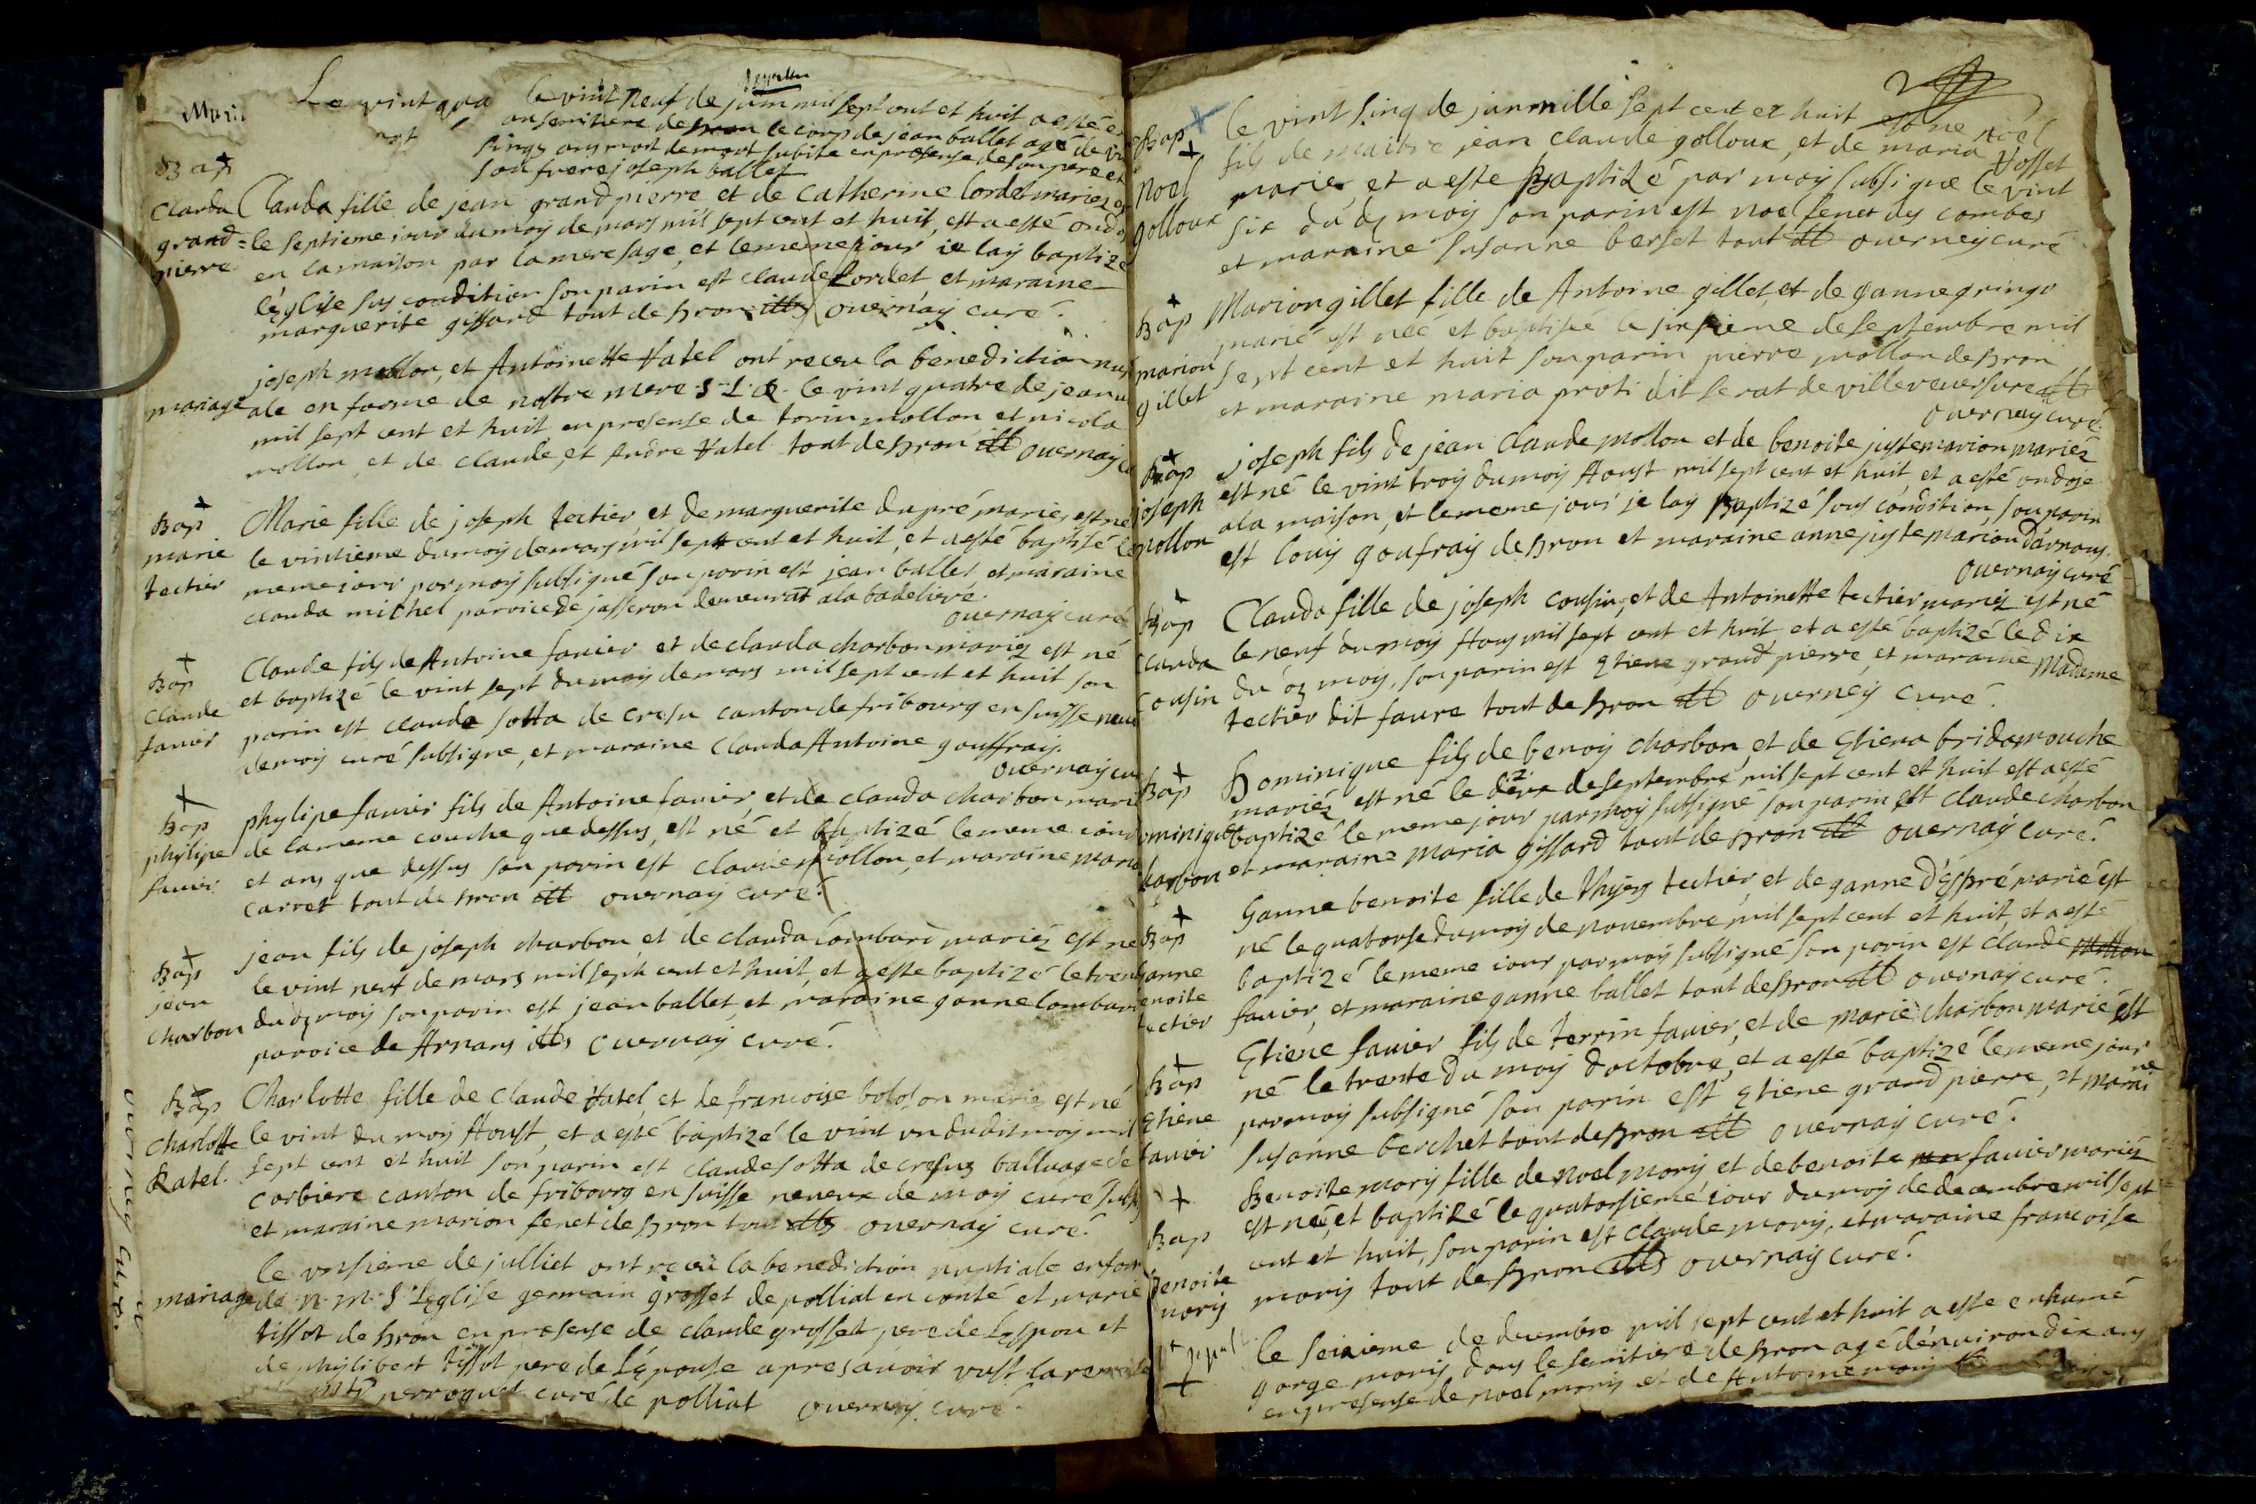 Le vint qua
le vint neuf de juin mil sept cent et huit a esté en
au semitiere de Bron le corps de jean ballet agé de vint
sings ans mort de mort subite en presense de son pere et
son frere joseph ballet
Bap
Clauda
grand=
pierre
Clauda fille de jean grand pierre et de Catherine Cordet mariez est
le septieme iour du moy de mars mil sept cent et huit, est a esté ondo
en la maison par la mere sage, et le meme jour ie lay baptizé
léglise sus condition son parin est claude Cordet, et maraine
marguerite gissard tout de Bron ouernay curé.
mariage
joseph mollon, et Antoinette Ratel ont receu la benediction nup
ale en forme de nostre mere S. L. E. le vint quatre de jeanu
mil sept cent et huit, en presense de torin mollon et nicola
mollon, et de claude, et Andre Ratel tout de Bron ouernay cu
Bap
marie
tectier
Marie fille de joseph tectier et de marguerite dupré mariez, est ne
le vintieme du moy de mars mil sept cent et huit, et a esté baptisé le
meme iour par moy subsigné son parin est jean ballet et maraine
clauda michel paroice de jasseron demeurat a la badeliere.
ouernay curé
Bap
claude
fauier
Claude fils de Antoine fauier et de clauda charbon mariez est né
et baptizé le vint sept du moy de mars mil sept cent et huit son
parin est claude sotta de cresu canton de fribourg en suisse neue
de moy curé subsigne, et maraine Clauda Antoine gouffray.
ouernay cu
Bap
phylipe
fauier
phylipe fauier fils de Antoine fauier, et de clauda charbon mari
de la meme couche que dessus, est né et baptizé le meme iour
et ans que dessus son parin est claude mollon, et maraine maria
carret tout de Bron ouernay curé.
Bap
jean
Charbon
jean fils de joseph charbon, et de clauda Lombard mariez est né
le vint neuf de mars mil seph cent et huit, et a este baptizé le trent
du dz moy son parin est jean ballet, et maraine ganne lombard
paroice de Arnans ouernay curé.
Bap
Charlotte
Ratel.
Charlotte fille de claude Ratel, et de francoise boloson marié est né
le vint du moy Aoust, et a esté baptizé le vint un dudit moy mil
sept cent et huit son parin est claude sotta de cresus balluage de
corbiere canton de fribourg en suisse neueux de moy curé subs
et maraine marion fenet de Bron tout ouernay curé.
mariage
le unsieme de julliet ont receu la benediction nuptiale en for
de n. m. S. Leglise germain grosset de polliat en conté et marie
tissot de Bron en presense de claude grosset pere de L'espou et
de phylibert tissot pere de L'épouse apres auoir vust la remise
perroquet curé de polliat ouernay curé.
ouernay curé.
Bap
Noel
golloux
le vint sinq de jun mille sept cent et huit est ne noel
fils de maitre jean claude golloux, et de maria Rosset
mariez et a este Baptizé par moy subsigne le vint
six du dz moy son parin est noel fenet des combes
et maraine susanne berset tout ouerney curé
Bap
marion
gillet
Marion gillet fille de Antoine gillet, et de ganne gringo
marié est neé et baptisé le sixsieme de septembre mil
sept cent et huit son parin pierre mollon de Bron
et maraine maria proti dit serat de villereuersure
ouernay curé.
Bap
joseph
mollon
joseph fils de jean claude mollon et de benoite juste marion mariez
est né le vint troy du moy Aoust mil sept cent et huit, et a esté ondoje
a la maison, et le meme jour je lay Baptizé sous condition, son parin
est louis goufray de Bron et maraine anne juste marion darnans.
ouernay curé
Bap
Clauda
Cousin
Clauda fille de joseph cousin, et de Antoinette tectier mariez est né
le neuf du moy Aous mil sept cent et huit et a esté baptizé le dix
du dz moy, son parin est Etiene grand pierre, et maraine Madame
tectier dit faure tout de Bron ouerney curé.
Bap
ominique
harbon
Dominique fils de benoy charbon, et de Etiena bridamouche
mariéz est né le deux de septembre, mil sept cent et huit est a esté
baptizé le meme jour par moy subsigné son parin est claude charbon
et maraine maria gissard tout de Bron ouernay curé.
Bap
anne
enoite
tectier
Ganne benoite fille de thyers tectier, et de ganne déspré marié est
né le quatorse du moy de nouembre, mil sept cent et huit, et a esté
baptizé le meme iour par moy subsigné son parin est claude mollon
fauier, et maraine ganne ballet tout de Bron ouernay curé.
Bap
Etiene
fauier
Etiene fauier fils de terrin fauier, et de marie charbon marié est
né le trente du moy doctobre, et a esté baptizé le meme jour
par moy subsigné son parin est Etiene grand pierre, et maraine
susanne berchet tout de Bron ouernay curé.
Bap
Benoite
mory
Benoite mory fille de noel mory et de benoite fauier mariéz
est neé, et baptizé le quatorsieme iour du moy de decembre mil sept
cent et huit, son parin est claude mory, et maraine francoise
mory tout de Bron ouernay curé.
le seixieme de decembre mil sept cent et huit a este enhumé
gorge mory dans le semitiere de Bron agé dénuiron dix ans
en presense de noel mory et de Antoine mory